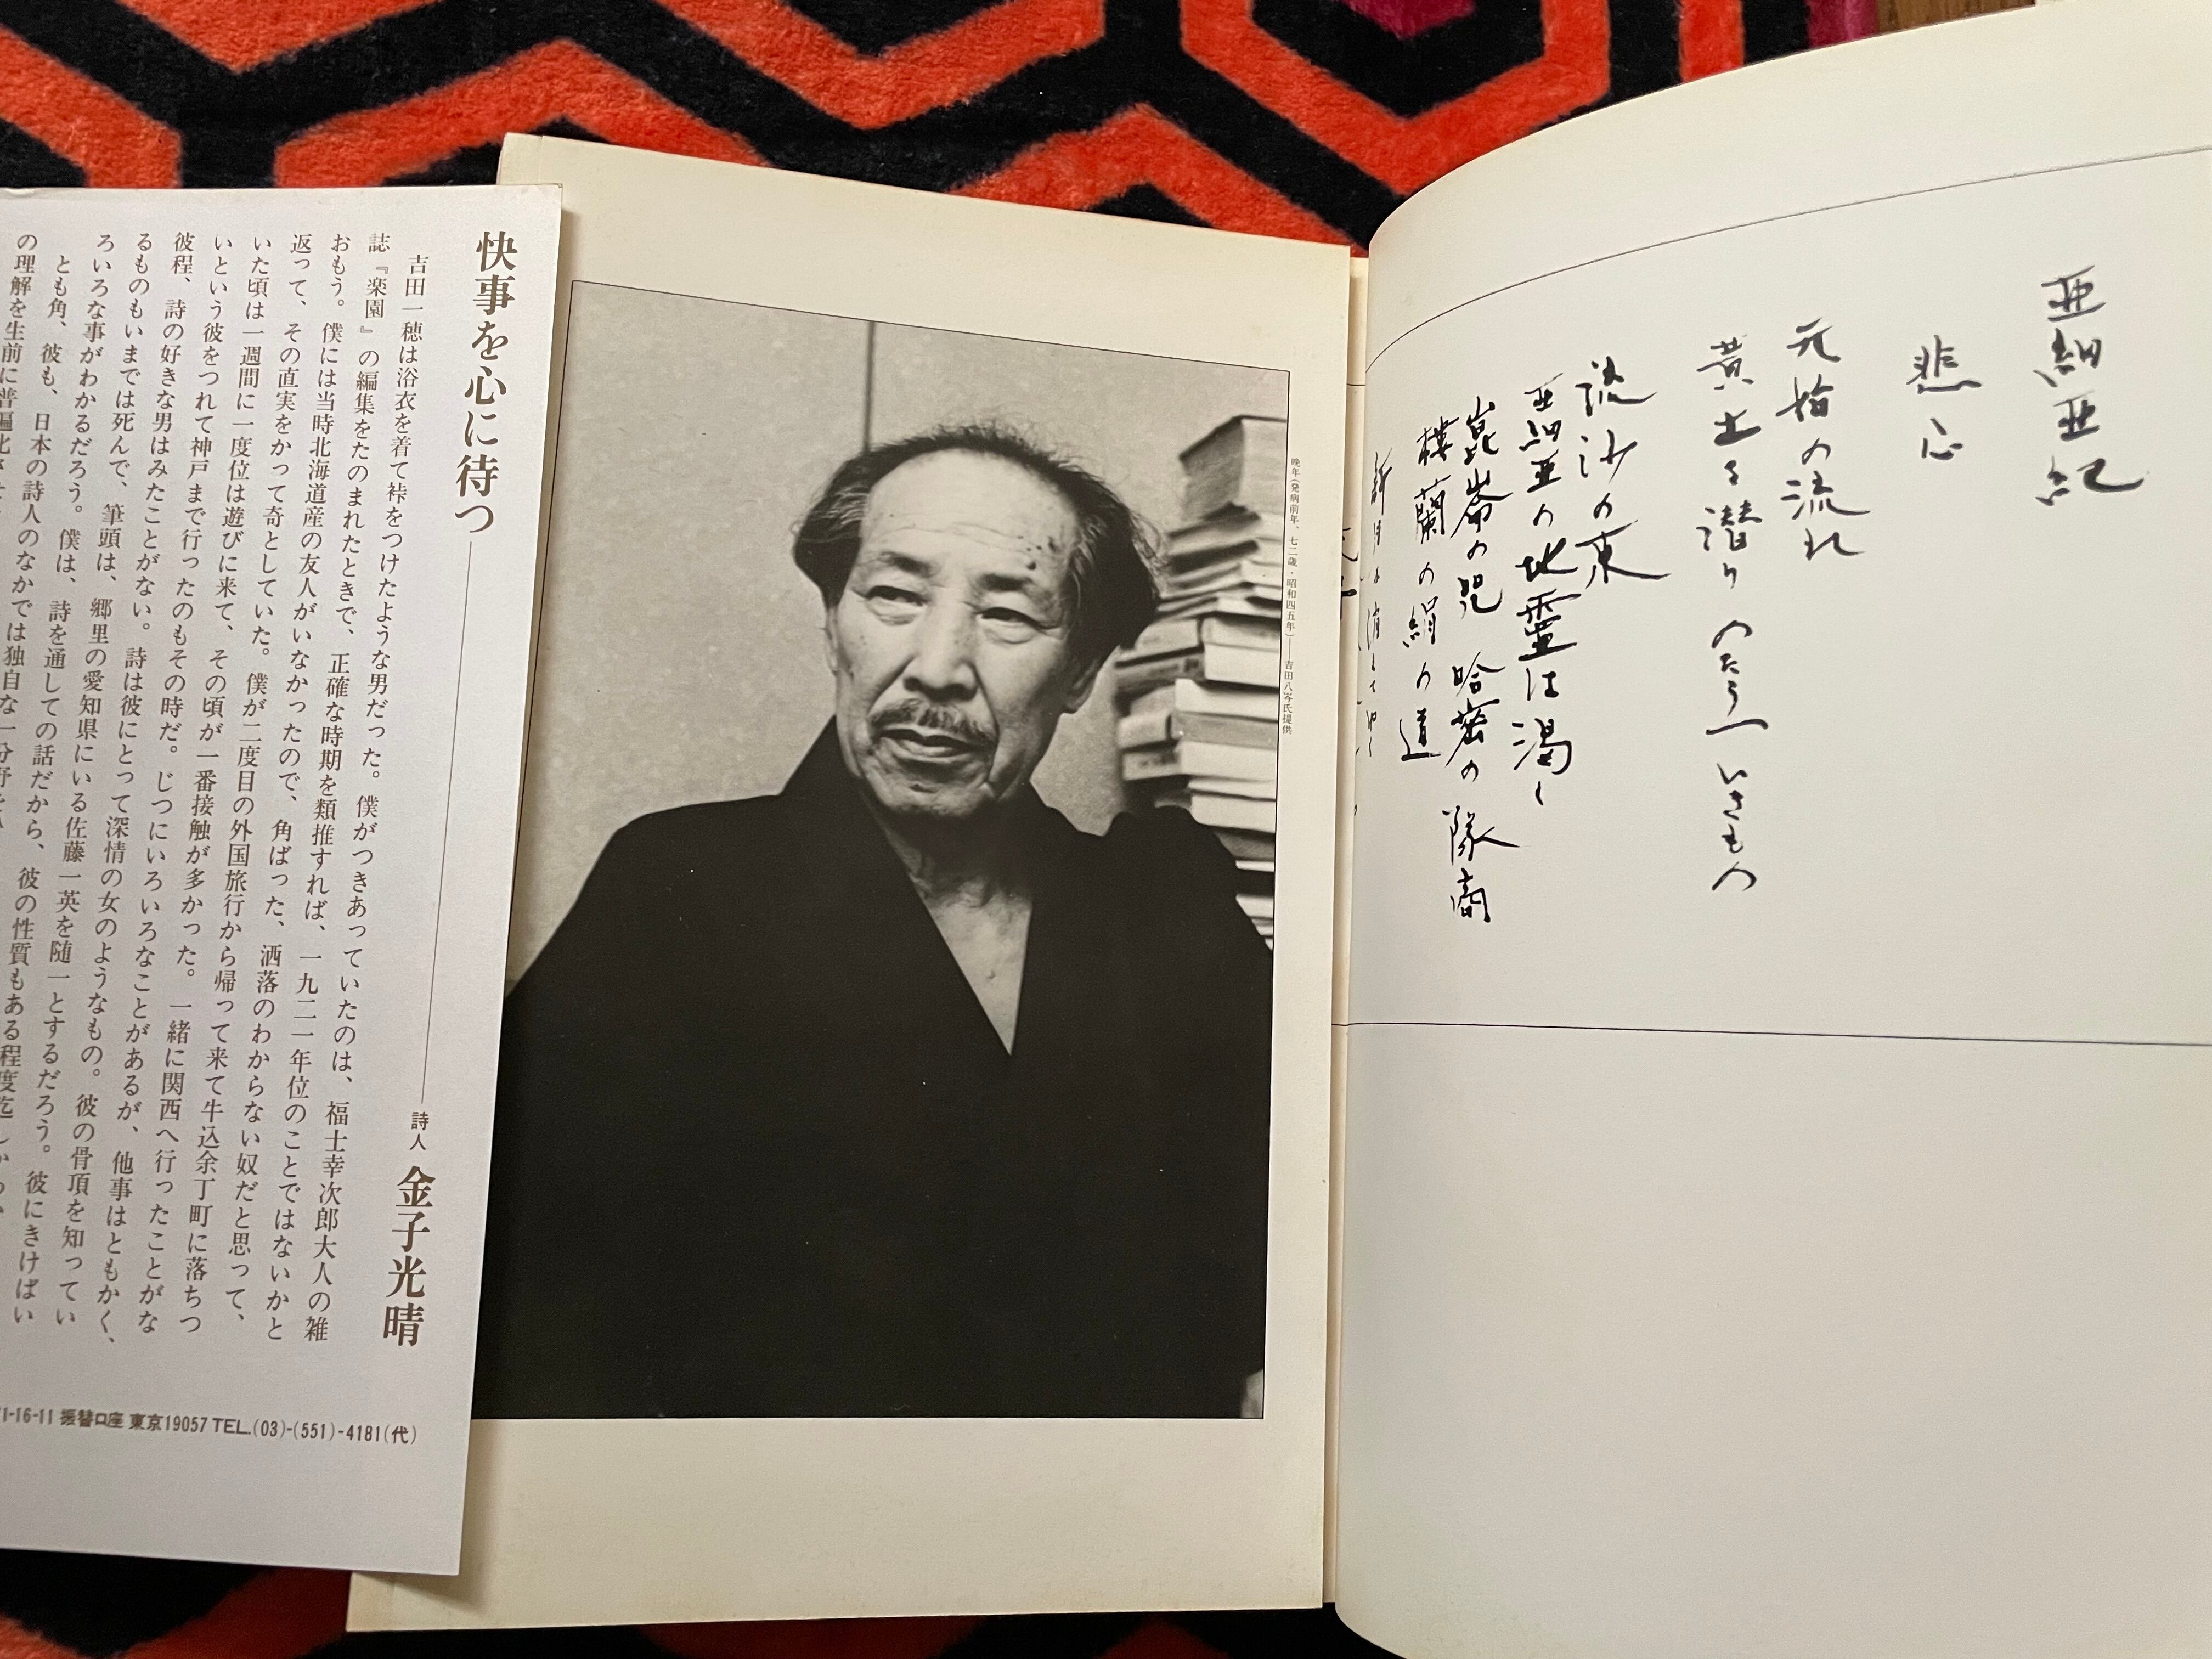 快事を心に待つ
詩人 金子光晴
吉田一穂は浴衣を着て裃をつけたような男だった。僕がつきあっていたのは、福士幸次郎大人の雑
誌『楽園』の編集をたのまれたときで、正確な時期を類推すれば、一九二一年位のことではないかと
おもう。僕には当時北海道産の友人がいなかったので、角ばった、洒落のわからない奴だと思って、
返って、その直実をかって奇としていた。僕が二度目の外国旅行から帰って来て牛込余丁町に落ちつ
いた頃は一週間に一度位は遊びに来て、その頃が一番接触が多かった。一緒に関西へ行ったことがな
いという彼をつれて神戸まで行ったのもその時だ。じつにいろいろなことがあるが、他事はともかく、
彼程、詩の好きな男はみたことがない。詩は彼にとって深情の女のようなもの。彼の骨頂を知ってい
るものもいまでは死んで、筆頭は、郷里の愛知県にいる佐藤一英を随一とするだろう。彼にきけばい
ろいろな事がわかるだろう。僕は、詩を通しての話だから、彼の性質もある程度迄しか
とも角、彼も、日本の詩人のなかでは独自な一分野を
の理解を生前に普遍化させ
1-16-11 振替口座 東京19057 TEL.(03)-(551)-4181(代)
晩年(発病前年、七二歳・昭和四五年)——吉田八岑氏提供
亜細亜記
悲心
元始の流れ
黄土を潜り のたうつ いさもの
流沙の東
亜細亜の地霊は渇し
崑崙の児 哈密の隊商
楼蘭の絹の道
新月は消えてゆく